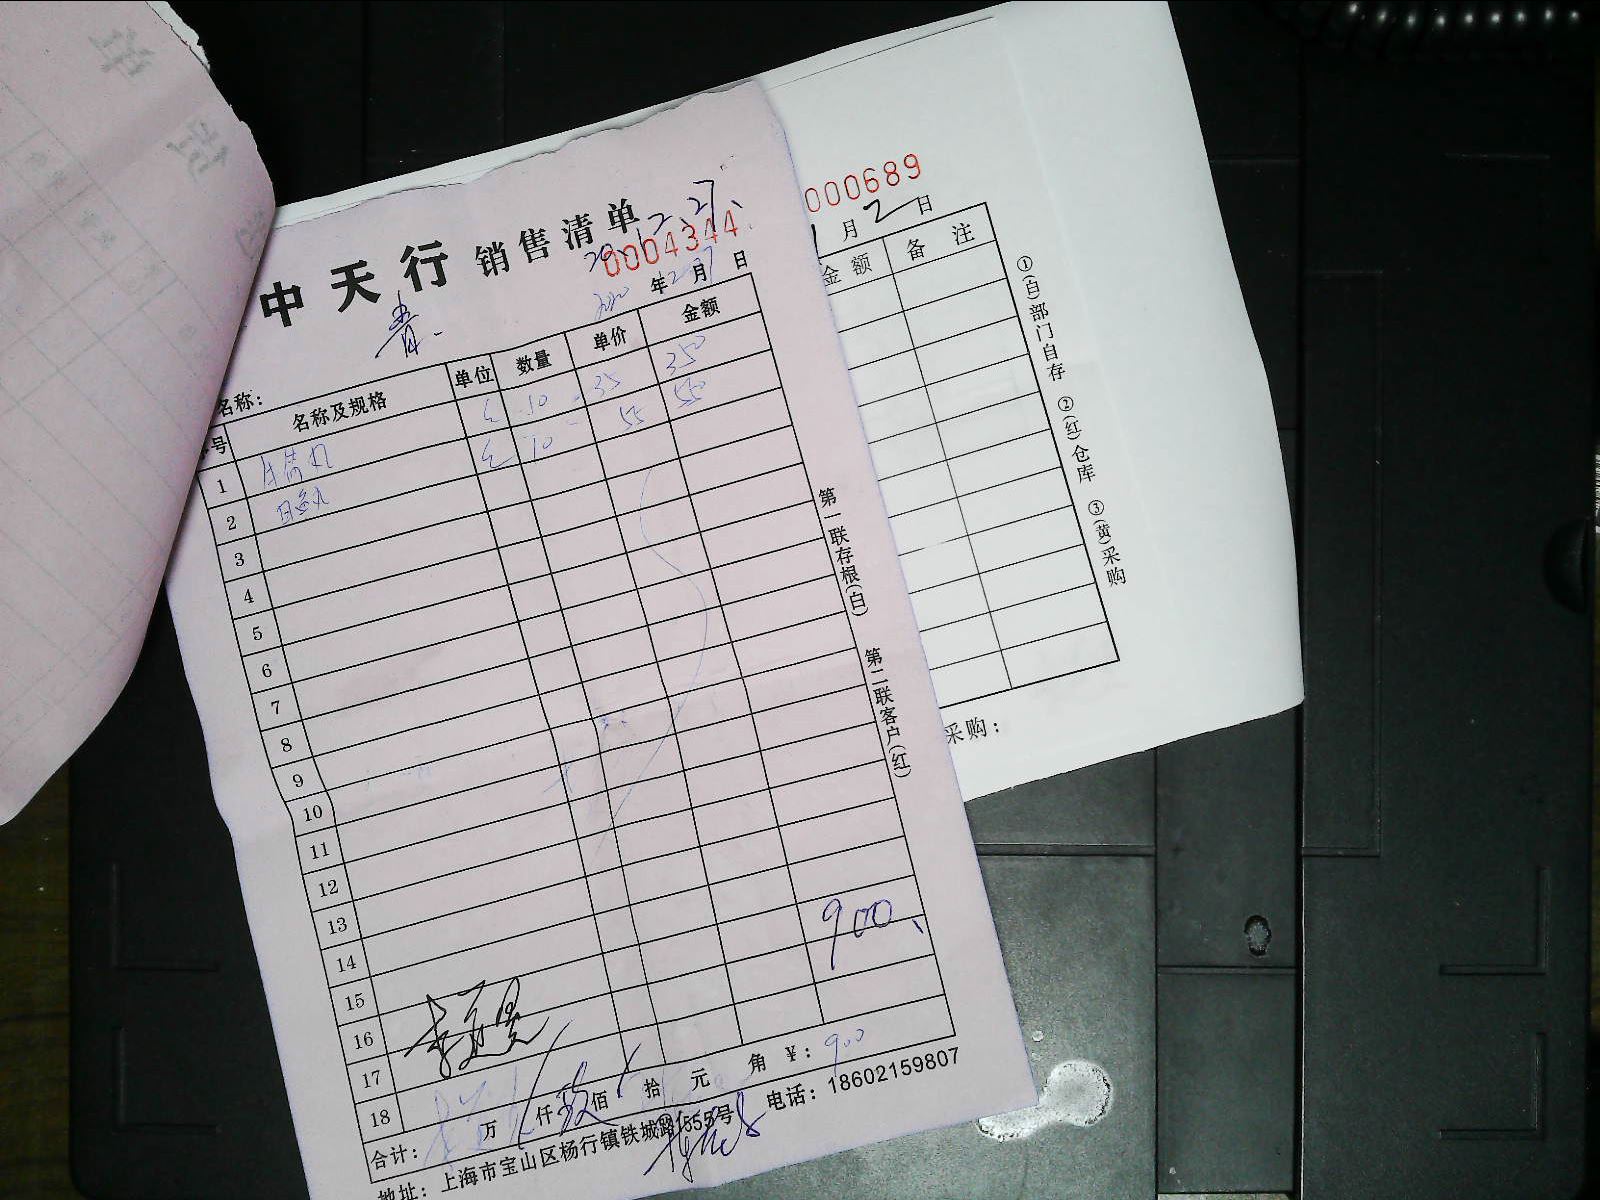 中天行 销售清单
20.12.27
0004344
年 月 日
青
名称:
号 名称及规格 单位 数量 单价 金额
1 10 35 350
2 10 55 550
3
4
5
6
7
8
9
10
11
12
13
14
15
16
17
18
900
合计: 万 仟 玖 佰 拾 元 角 ¥: 900
地址: 上海市宝山区杨行镇铁城路1555号 电话: 18602159807
第一联存根(白) 第二联客户(红)
000689
月 2 日
金额 备注
①(白)部门自存 ②(红)仓库 ③(黄)采购
采购: